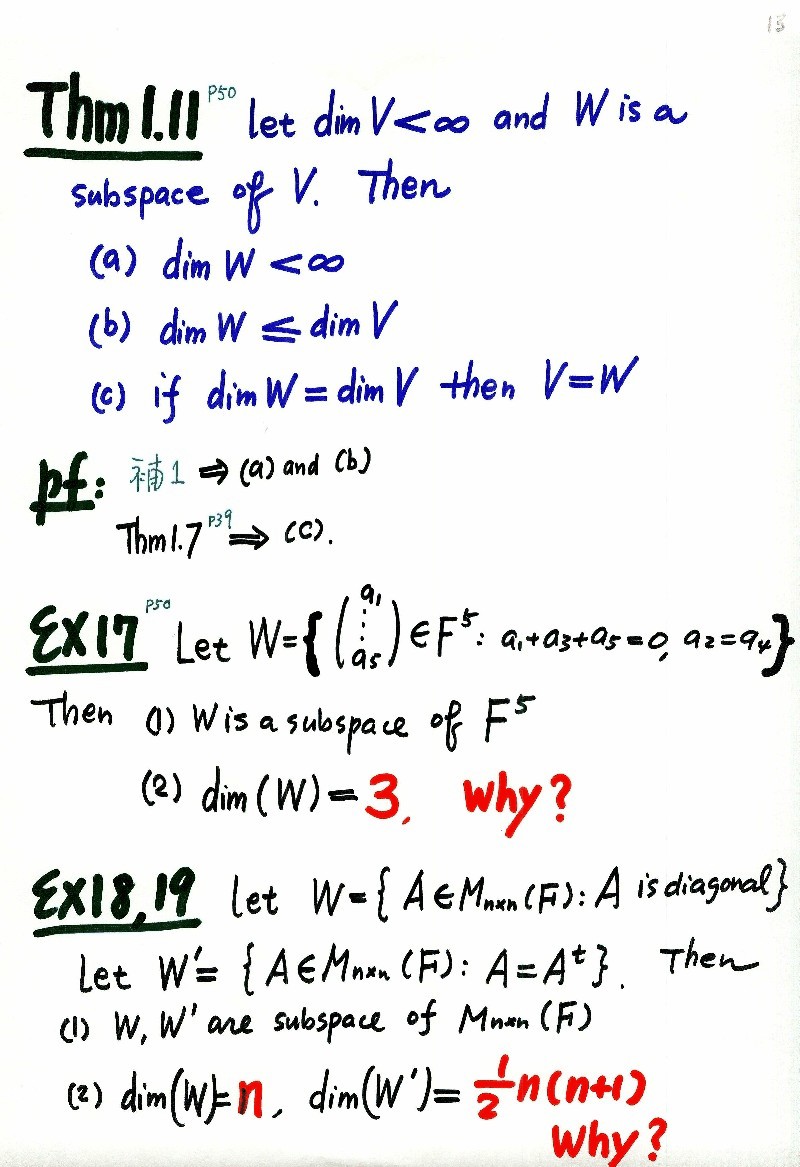 15
Thm 1.11 P50 let dim V < ∞ and W is a
subspace of V. Then
(a) dim W < ∞
(b) dim W ≦ dim V
(c) if dim W = dim V then V = W
pf: 補1 ⇒ (a) and (b)
Thm 1.7 P39 ⇒ (c).
EX17 P50 Let W = { (a₁ ⋮ a₅) ∈ F⁵ : a₁+a₃+a₅=0, a₂=a₄ }
Then (1) W is a subspace of F⁵
(2) dim (W) = 3. Why?
EX18,19 Let W = { A ∈ Mₙₓₙ(F) : A is diagonal }
Let W' = { A ∈ Mₙₓₙ(F) : A = Aᵗ }. Then
(1) W, W' are subspace of Mₙₓₙ(F)
(2) dim(W) = n, dim(W') = ½n(n+1)
Why?